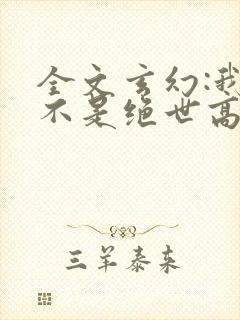 全文玄幻:我
不是绝世高
三羊泰来